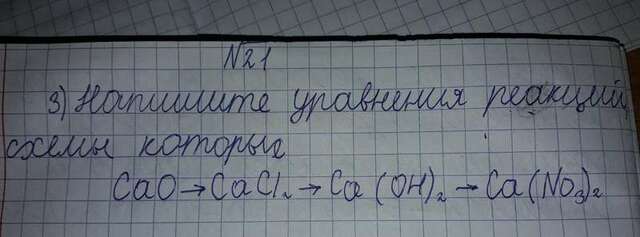 №21
3) Напишите уравнения реакций
схемы которых
CaO→CaCl₂→Ca(OH)₂→Ca(NO₃)₂